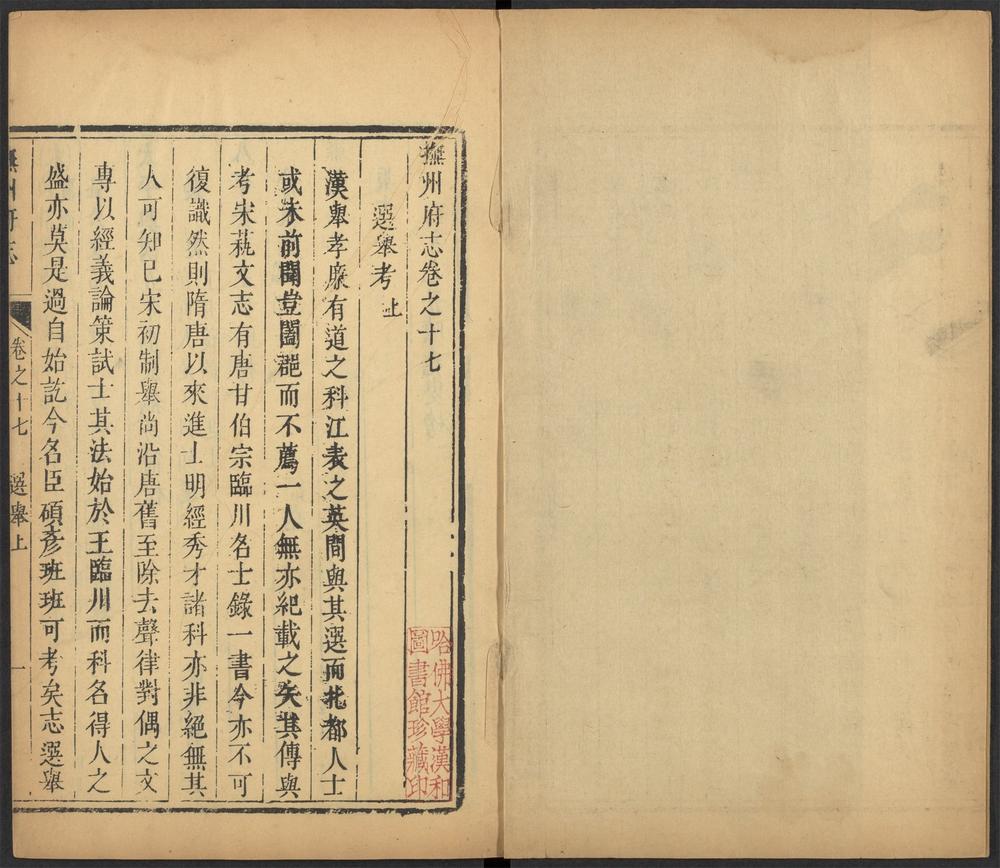 撫州府志卷之十七
選舉考上
漢舉孝廉有道之科江表之英間與其選而北都人士
或未前聞豈闔郡而不薦一人無亦紀載之失其傳與
考宋蓺文志有唐甘伯宗臨川名士錄一書今亦不可
復識然則隋唐以來進士明經秀才諸科亦非絕無其
人可知已宋初制舉尚沿唐舊至除去聲律對偶之文
專以經義論策試士其法始於王臨川而科名得人之
盛亦莫是過自始訖今名臣碩彥班班可考矣志選舉
撫州府志
卷之十七
選舉上
一
哈佛大學漢和
圖書館珍藏印